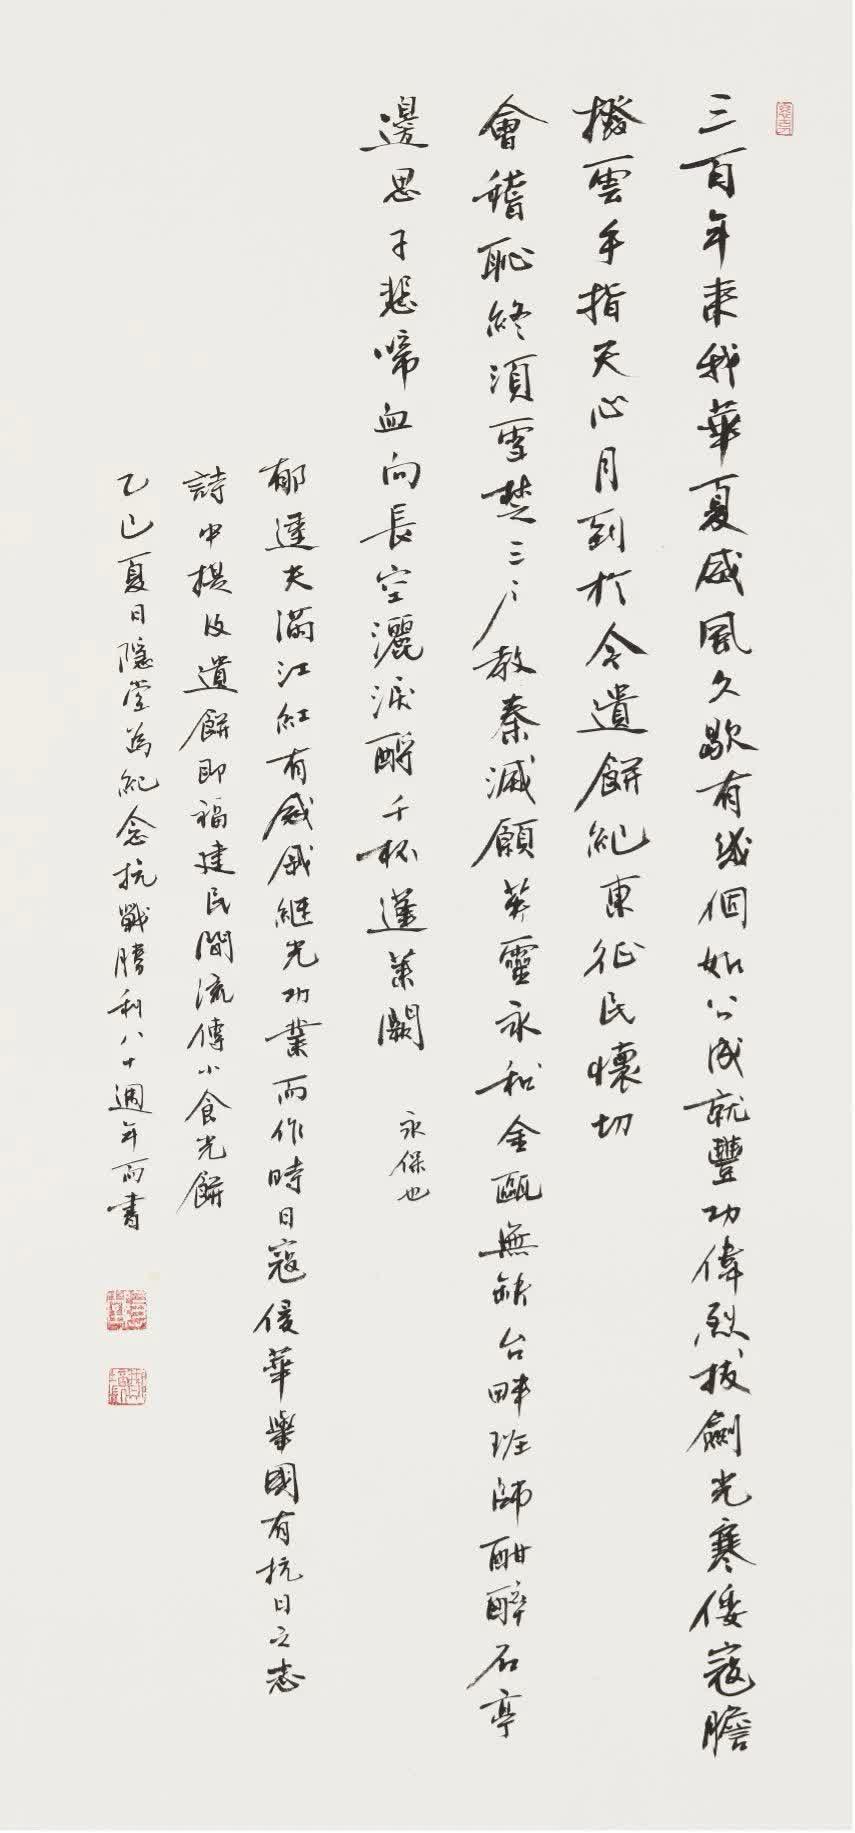 三百年來我華夏威風久歇有幾個如公成就豐功偉烈拔劍光寒倭寇膽
撥雲手指天心月到於今遺餅紀東征民懷切
會稽恥終須雪楚三戶教秦滅願英靈永保金甌無缺台畔班師酣醉石亭
邊思子悲啼血向長空灑淚酹千杯蓬萊闕
永保也
郁達夫滿江紅有感戚繼光功業而作時日寇侵華舉國有抗日之志
詩中提及遺餅即福建民間流傳小食光餅
乙巳夏日隱堂為紀念抗戰勝利八十週年而書